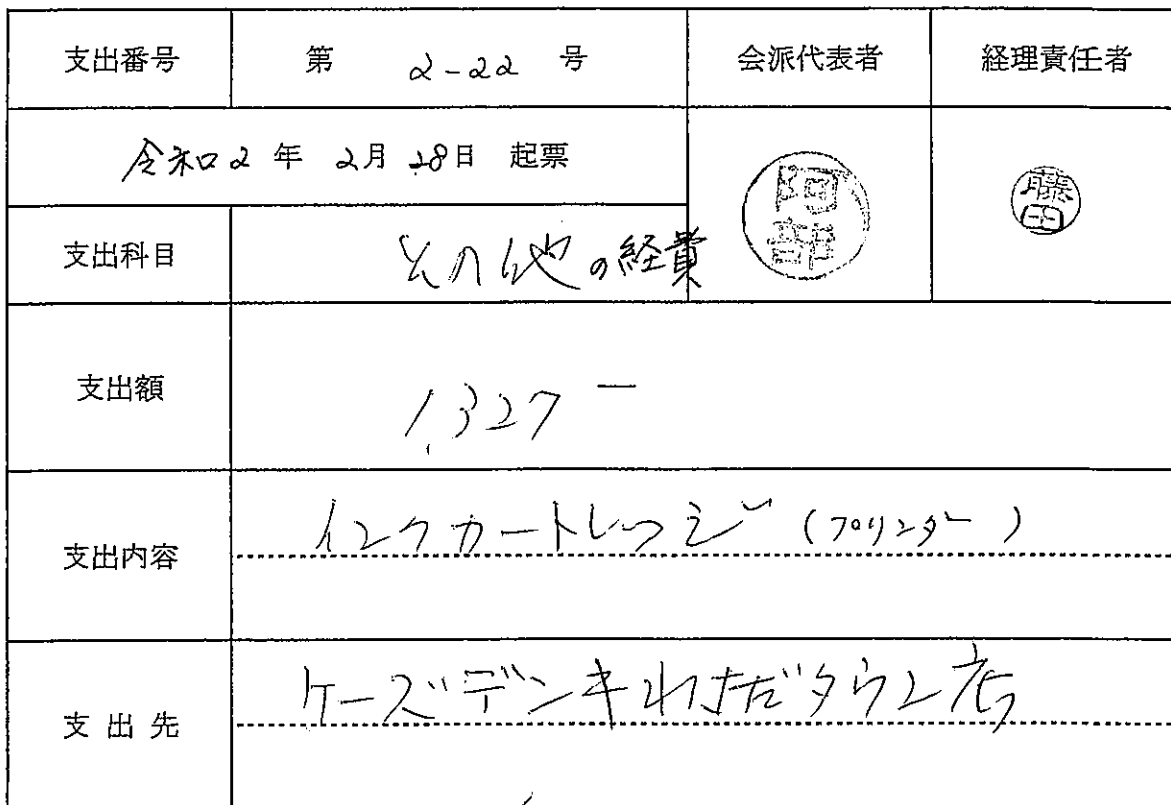 支出番号 第 2-22 号 会派代表者 経理責任者
令和2年 2月28日 起票
阿部
藤田
支出科目 その他の経費
支出額 1,327ー
支出内容 インクカートレッジ (プリンダー)
支出先 ケーズデンキわさだタウン店